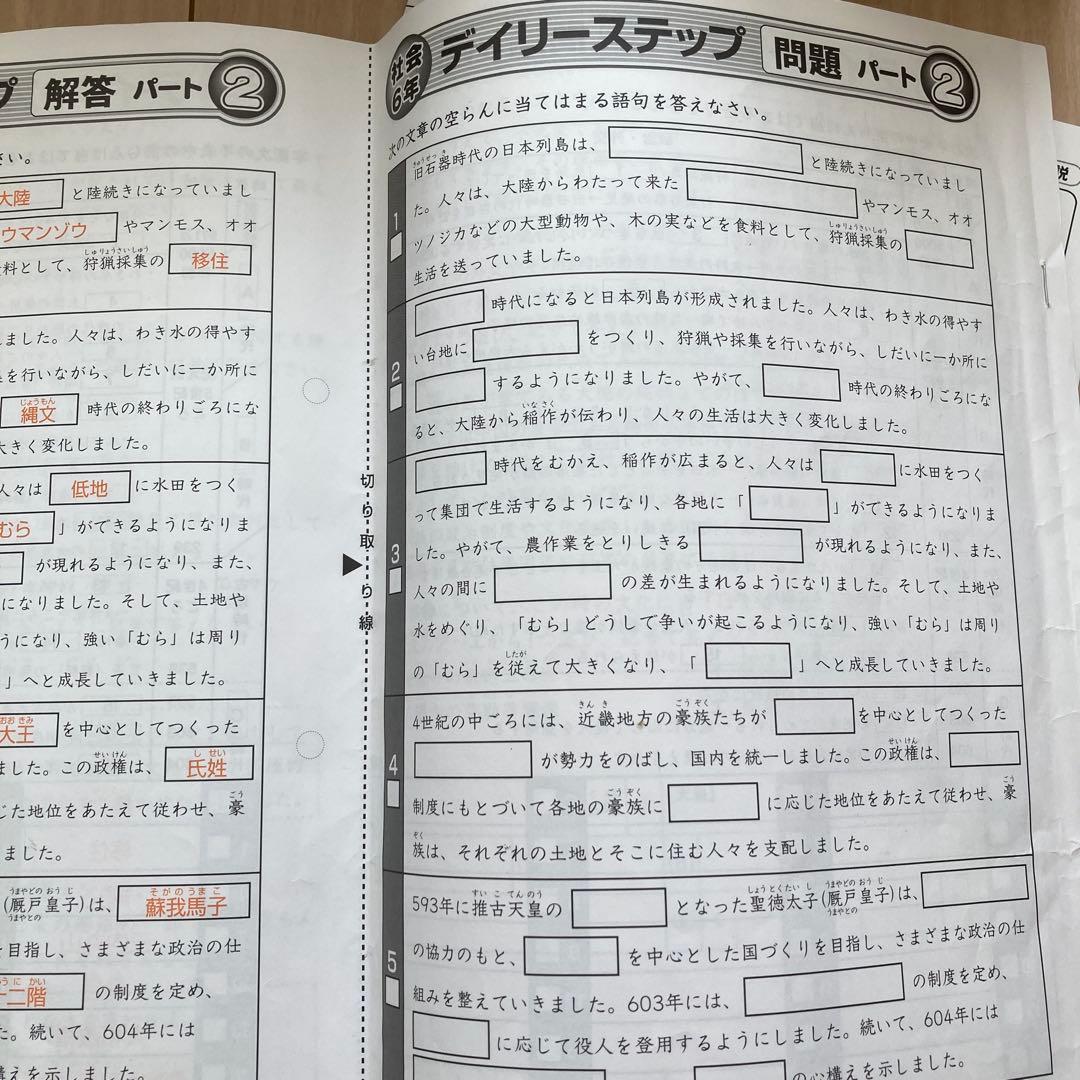 プ 解答 パート 2
さい。
大陸 と陸続きになっていまし
ウマンゾウ やマンモス、オオ
しゅりょうさいしゅう
料として、狩猟採集の 移住
ました。人々は、わき水の得やす
集を行いながら、しだいに一か所に
じょうもん
縄文 時代の終わりごろにな
大きく変化しました。
人々は 低地 に水田をつく
むら 」ができるようになりま
が現れるようになり、また、
になりました。そして、土地や
うになり、強い「むら」は周り
」へと成長していきました。
おおきみ
大王 を中心としてつくった
せいけん しせい
ました。この政権は、 氏姓
ごう
じた地位をあたえて従わせ、豪
ました。
うまやどのおうじ そがのうまこ
(厩戸皇子)は、 蘇我馬子
うまやとの
を目指し、さまざまな政治の仕
うにかい
十二階 の制度を定め、
た。続いて、604年には
構えを示しました。
切り取り線
社会6年 デイリーステップ 問題 パート 2
次の文章の空らんに当てはまる語句を答えなさい。
1
きゅうせっき
旧石器時代の日本列島は、 と陸続きになっていまし
た。人々は、大陸からわたって来た やマンモス、オオ
しゅりょうさいしゅう
ツノジカなどの大型動物や、木の実などを食料として、狩猟採集の
生活を送っていました。
2
時代になると日本列島が形成されました。人々は、わき水の得やす
い台地に をつくり、狩猟や採集を行いながら、しだいに一か所に
するようになりました。やがて、 時代の終わりごろにな
いなさく
ると、大陸から稲作が伝わり、人々の生活は大きく変化しました。
3
時代をむかえ、稲作が広まると、人々は に水田をつく
って集団で生活するようになり、各地に「 」ができるようになりま
した。やがて、農作業をとりしきる が現れるようになり、また、
人々の間に の差が生まれるようになりました。そして、土地や
水をめぐり、「むら」どうしで争いが起こるようになり、強い「むら」は周り
したが
の「むら」を従えて大きくなり、「 」へと成長していきました。
4
きんき ごうぞく
4世紀の中ごろには、近畿地方の豪族たちが を中心としてつくった
せいけん
が勢力をのばし、国内を統一しました。この政権は、
ごうぞく ごう
制度にもとづいて各地の豪族に に応じた地位をあたえて従わせ、豪
ぞく
族は、それぞれの土地とそこに住む人々を支配しました。
5
すいこてんのう しょうとくたいし うまやどのおうじ
593年に推古天皇の となった聖徳太子(厩戸皇子)は、
うまやとの
の協力のもと、 を中心とした国づくりを目指し、さまざまな政治の仕
組みを整えていきました。603年には、 の制度を定め、
に応じて役人を登用するようにしました。続いて、604年には
の心構えを示しました。
説